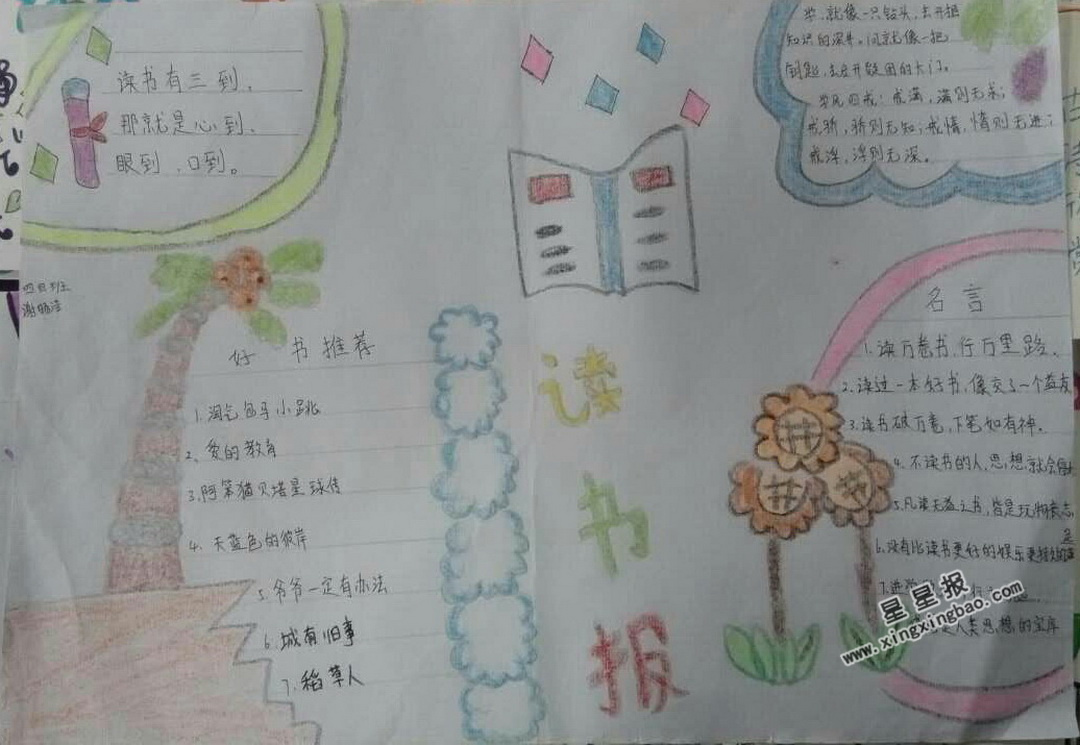 读书有三到，
那就是心到、
眼到、口到。
学，就像一只钻头，去开掘
知识的深井。问就像一把
钥匙，去启开疑团的大门。
学风四戒：戒满，满则无求；
戒骄，骄则无知；戒惰，惰则无进；
戒浮，浮则无深。
好 书 推 荐
1.淘气包马小跳
2、爱的教育
3.阿笨猫贝塔星球传
4、天蓝色的彼岸
5.爷爷一定有办法
6.城南旧事
7.稻草人
读
书
报
名 言
1.读万卷书，行万里路。
2.读过一本好书，像交了一个益友
3.读书破万卷，下笔如有神。
4.不读书的人，思想就会停止
5.凡读无益之书，皆是玩物丧志
6.没有比读书更好的娱乐更持久的
7.
是人类思想的宝库
星星报
www.xingxingbao.com